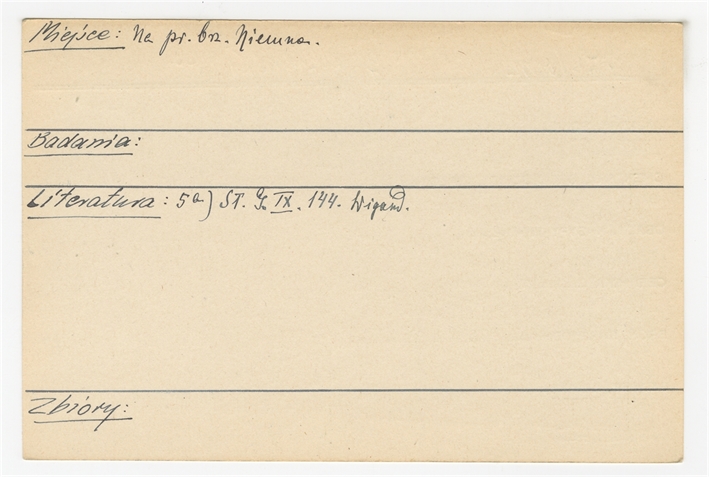 Miejsce: Na pr. brz. Niemna.
Badania:
Literatura: 5a) St. G. IX. 144. Wigand.
Zbiory: